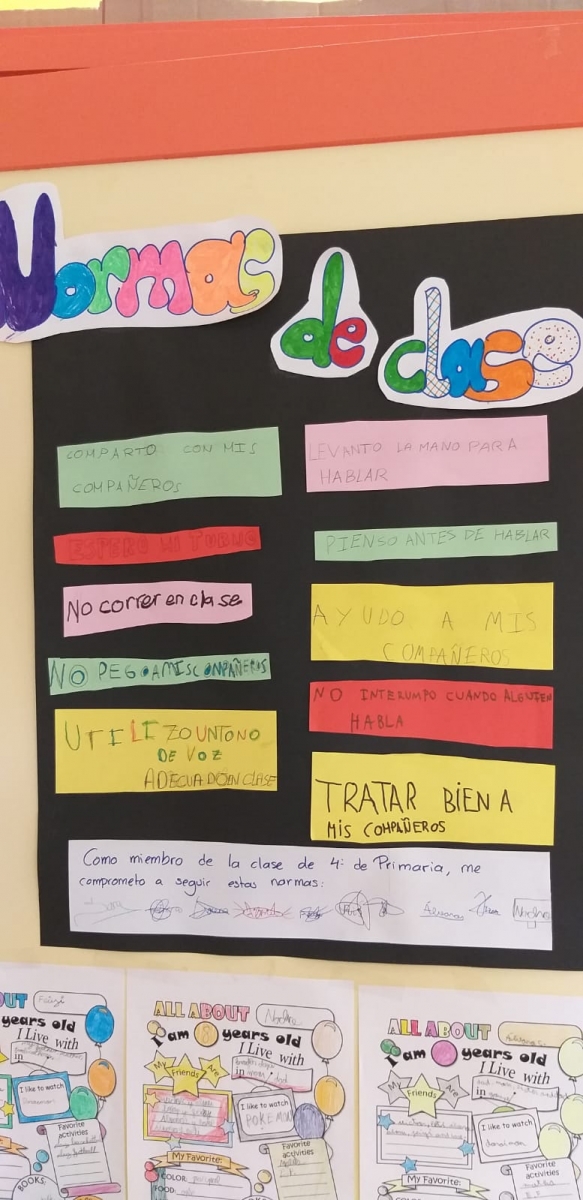 Normas de clase
COMPARTO CON MIS
COMPAÑEROS
ESPERO MI TURNO
No correr en clase
NO PEGO A MIS COMPAÑEROS
UTILIZO UN TONO
DE VOZ
ADECUADO EN CLASE
LEVANTO LA MANO PARA
HABLAR
PIENSO ANTES DE HABLAR
AYUDO A MIS
COMPAÑEROS
NO INTERUMPO CUANDO ALGUIEN
HABLA
TRATAR BIEN A
MIS COMPAÑEROS
Como miembro de la clase de 4º de Primaria, me
comprometo a seguir estas normas:
OUT
years old
I Live with
in
I like to watch
Favorite
activities
BOOKS:
ALL ABOUT
I am 8 years old
I Live with
in
My Friends Are
I like to watch
POKEMON
Favorite
activities
My Favorite:
COLOR:
FOOD:
ALL ABOUT
I am years old
I Live with
in
My Friends Are
I like to watch
Favorite
activities
My Favorite: